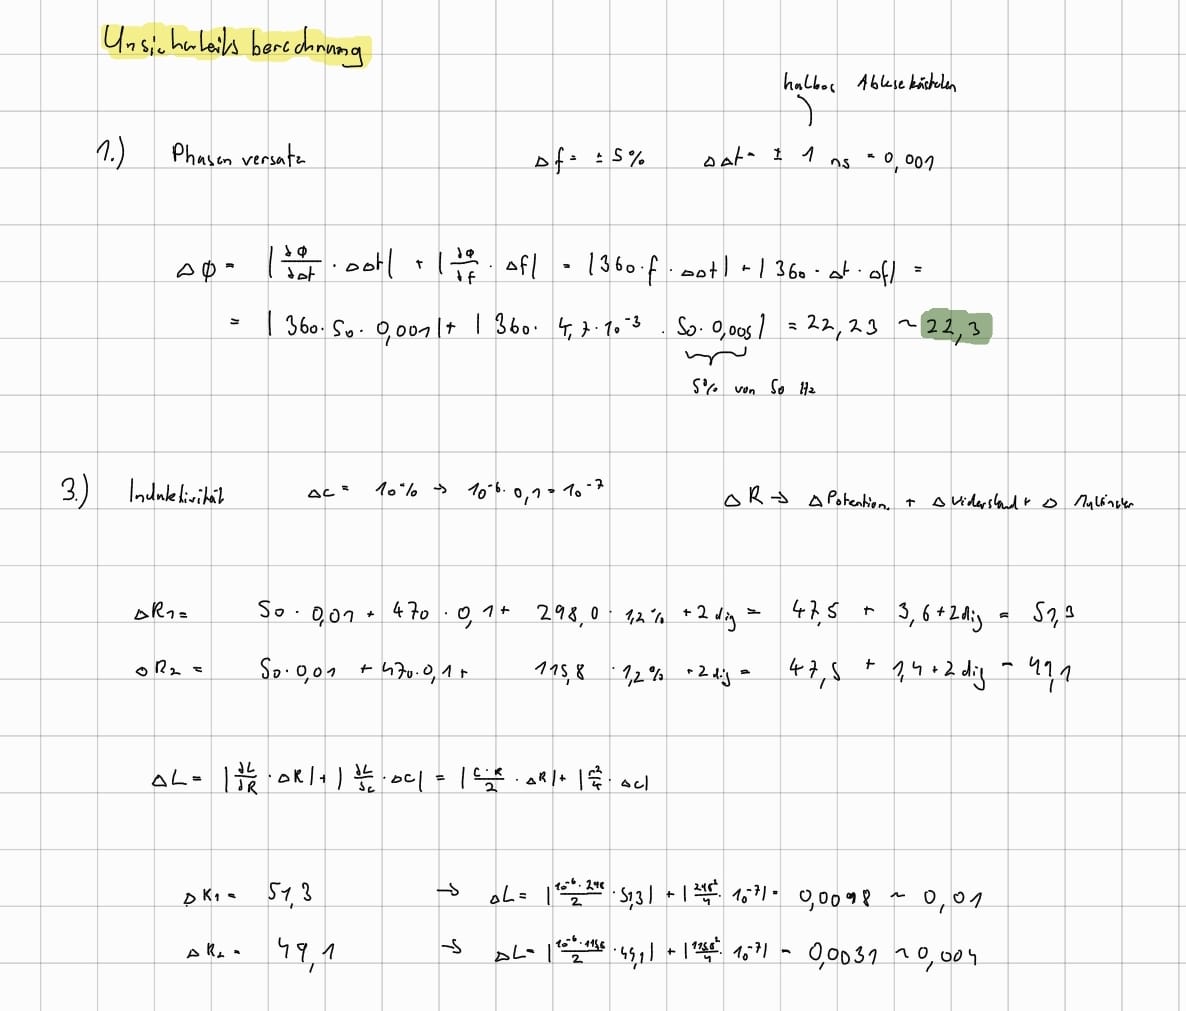 Unsicherheitsberechnung
halbes Ablesekästchen
1.) Phasenversatz Δf = ± 5% ΔΔt = ± 1 ms = 0,001
Δφ = |∂φ/∂Δt · ΔΔt| + |∂φ/∂f · Δf| = |360·f · ΔΔt| + |360 · Δt · Δf| =
= |360· 50 · 0,001| + |360 · 4,7·10⁻³ · 50 · 0,005| = 22,23 ~ 22,3
5% von 50 Hz
3.) Induktivität ΔC = 10% → 10⁻⁶ · 0,1 = 10⁻⁷ ΔR → Δ Potention. + Δ Widerstand + Δ
ΔR₁ = 50 · 0,01 + 470 · 0,1 + 298,0 · 1,2% + 2 dig = 47,5 + 3,6 + 2 dig = 51,3
ΔR₂ = 50·0,01 + 470·0,1 + 115,8 · 1,2% + 2 dig = 47,5 + 1,4 + 2 dig = 49,1
ΔL = |∂L/∂R · ΔR| + |∂L/∂C · ΔC| = |C·R/2 · ΔR| + |R²/4 · ΔC|
ΔR₁ = 51,3 → ΔL = |10⁻⁶ · /2 · 51,3| + | /4 · 10⁻⁷| = 0,0098 ~ 0,01
ΔR₂ = 49,1 → ΔL = |10⁻⁶ · /2 · 49,1| + | /4 · 10⁻⁷| = 0,0031 ~ 0,004